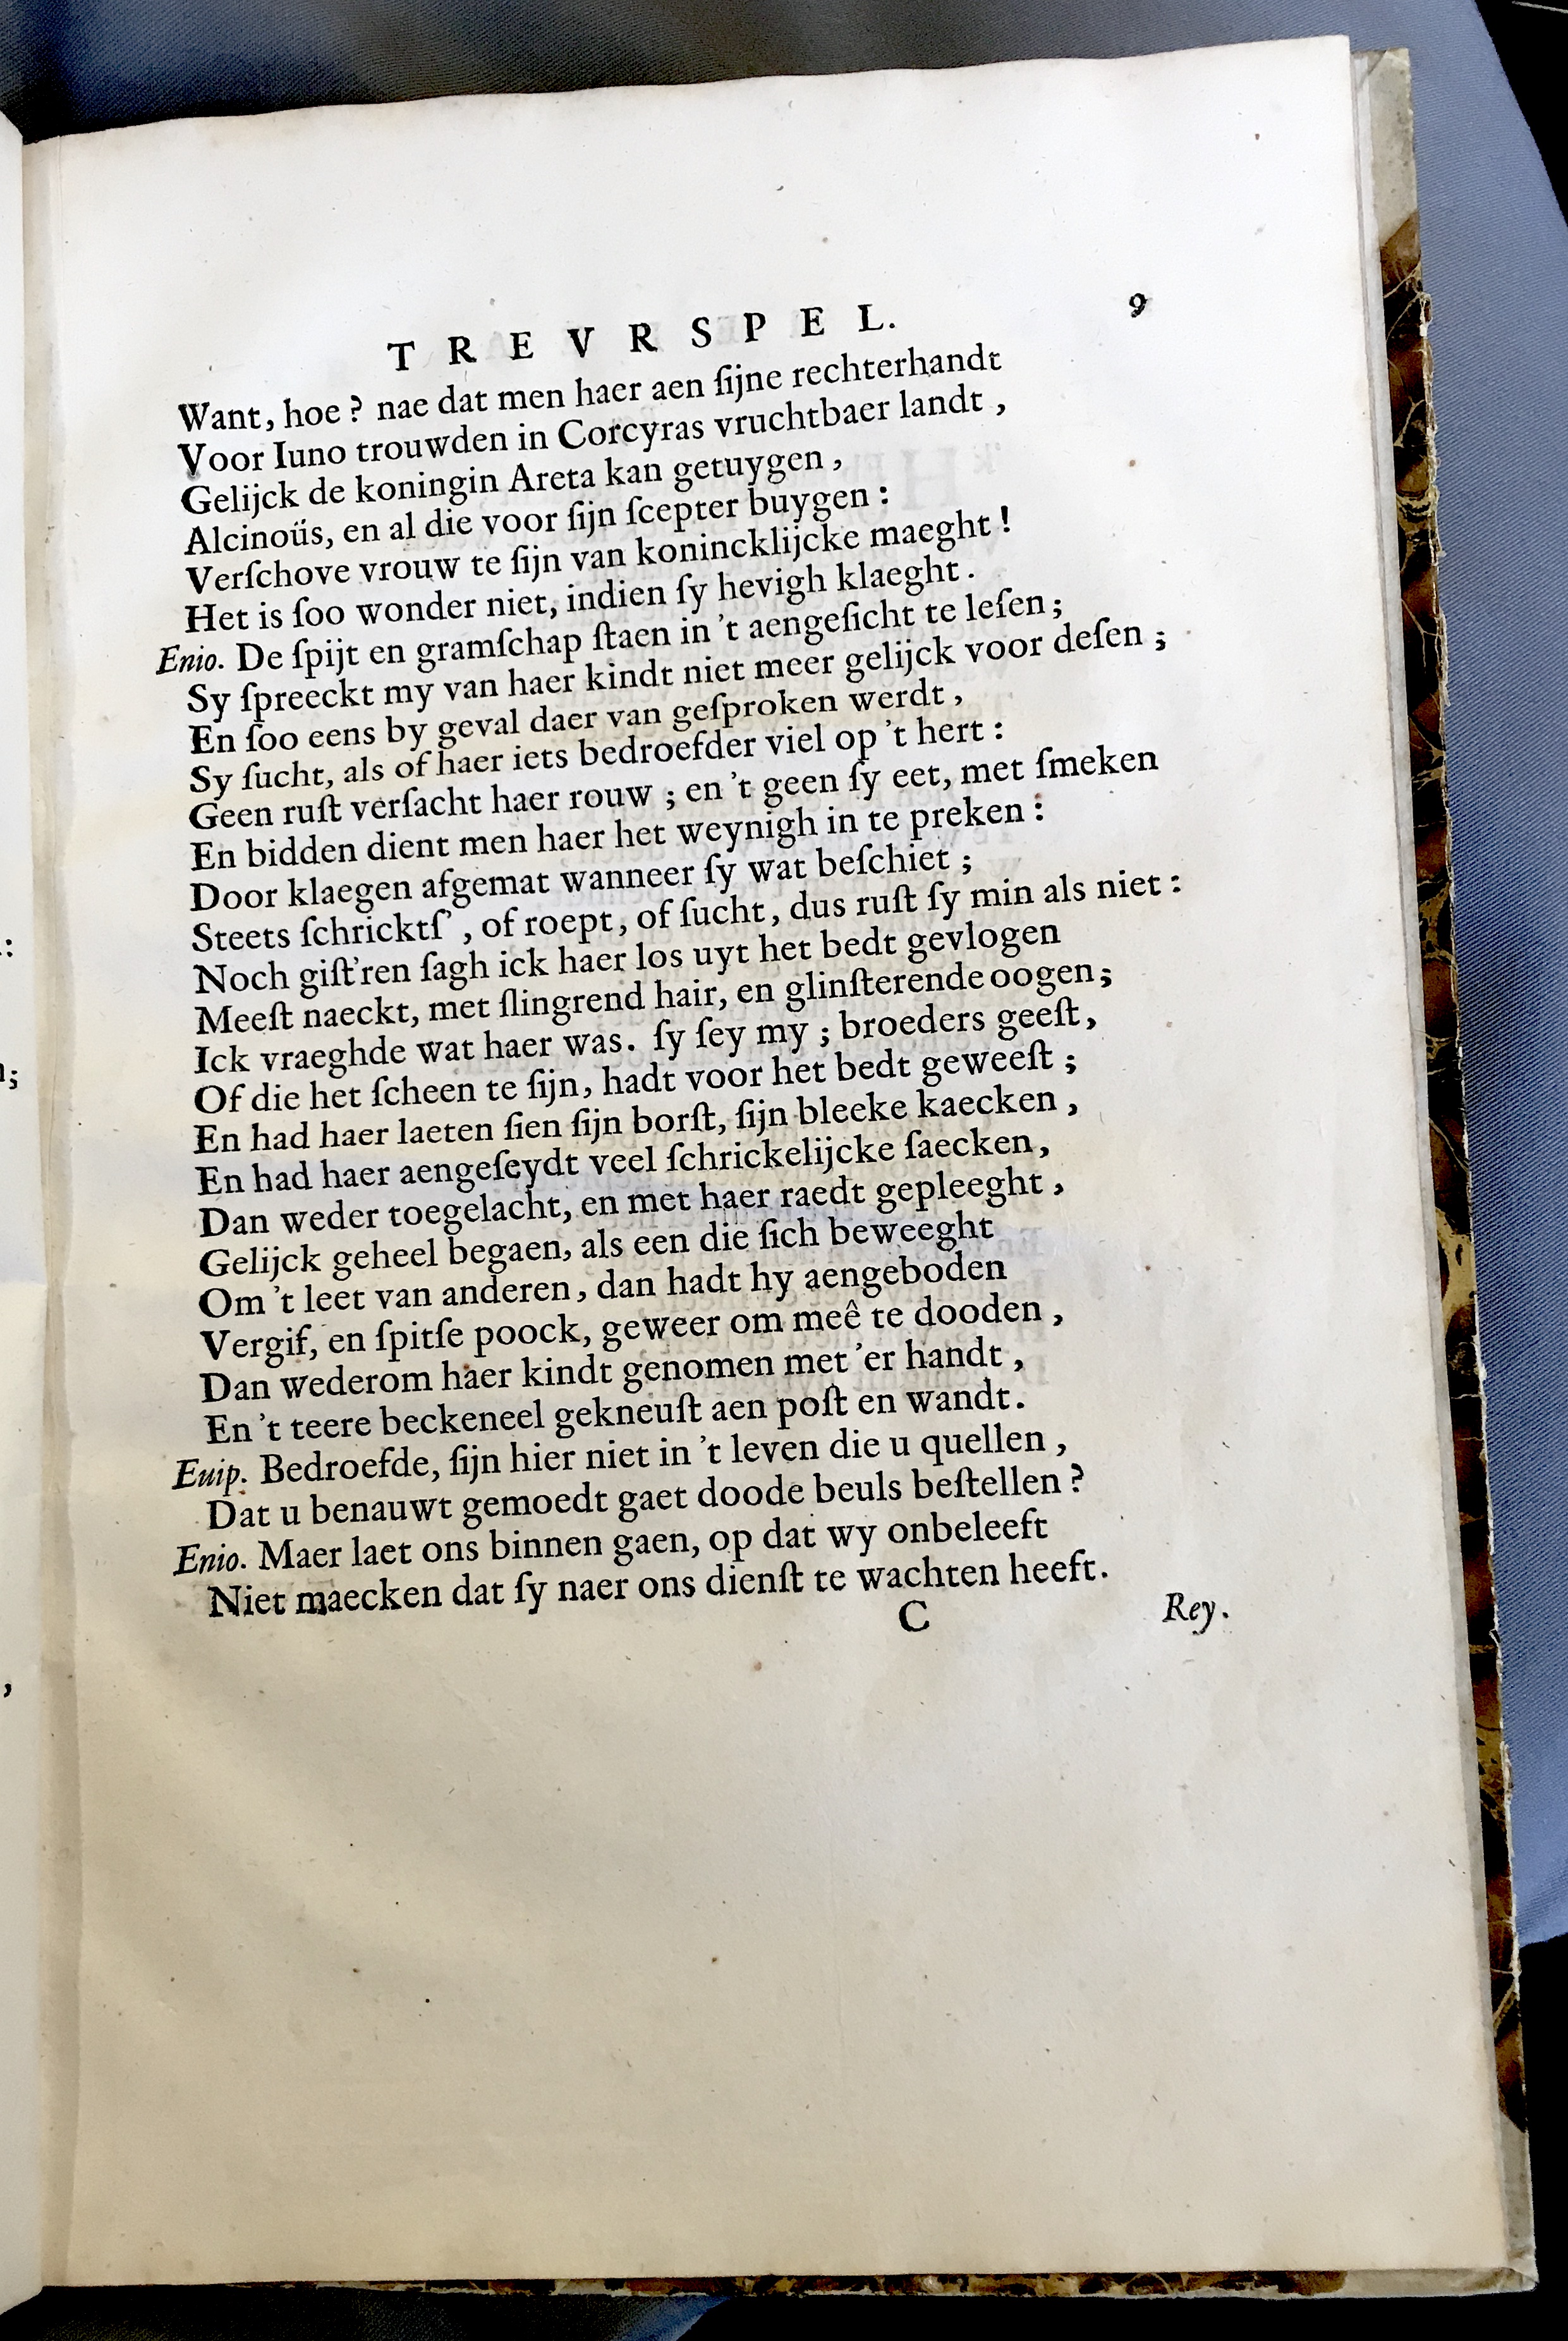 TREVRSPEL. 9
Want, hoe? nae dat men haer aen ſijne rechterhandt
Voor Iuno trouwden in Corcyras vruchtbaer landt,
Gelijck de koningin Areta kan getuygen,
Alcinoüs, en al die voor ſijn ſcepter buygen:
Verſchove vrouw te ſijn van konincklijcke maeght!
Het is ſoo wonder niet, indien ſy hevigh klaeght.
Enio. De ſpijt en gramſchap ſtaen in 't aengeſicht te leſen;
Sy ſpreeckt my van haer kindt niet meer gelijck voor deſen;
En ſoo eens by geval daer van geſproken werdt,
Sy ſucht, als of haer iets bedroefder viel op 't hert:
Geen ruſt verſacht haer rouw; en 't geen ſy eet, met ſmeken
En bidden dient men haer het weynigh in te preken:
Door klaegen afgemat wanneer ſy wat beſchiet;
Steets ſchricktſ', of roept, of ſucht, dus ruſt ſy min als niet:
Noch giſt'ren ſagh ick haer los uyt het bedt gevlogen
Meeſt naeckt, met ſlingrend hair, en glinſterende oogen;
Ick vraeghde wat haer was. ſy ſey my; broeders geeſt,
Of die het ſcheen te ſijn, hadt voor het bedt geweeſt;
En had haer laeten ſien ſijn borſt, ſijn bleeke kaecken,
En had haer aengeſeydt veel ſchrickelijcke ſaecken,
Dan weder toegelacht, en met haer raedt gepleeght,
Gelijck geheel begaen, als een die ſich beweeght
Om 't leet van anderen, dan hadt hy aengeboden
Vergif, en ſpitſe poock, geweer om meê te dooden,
Dan wederom haer kindt genomen met 'er handt,
En 't teere beckeneel gekneuſt aen poſt en wandt.
Euip. Bedroefde, ſijn hier niet in 't leven die u quellen,
Dat u benauwt gemoedt gaet doode beuls beſtellen?
Enio. Maer laet ons binnen gaen, op dat wy onbeleeft
Niet maecken dat ſy naer ons dienſt te wachten heeft.
C Rey.